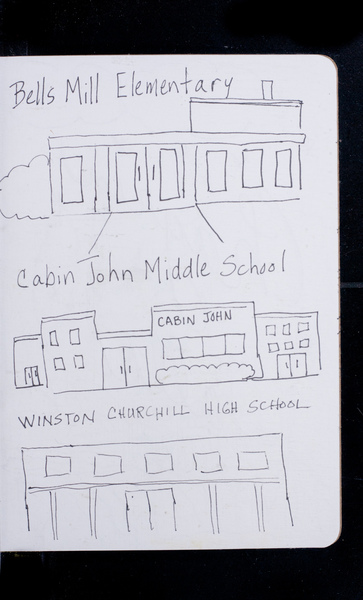 Bells Mill Elementary
Cabin John Middle School
CABIN JOHN
WINSTON CHURCHILL HIGH SCHOOL